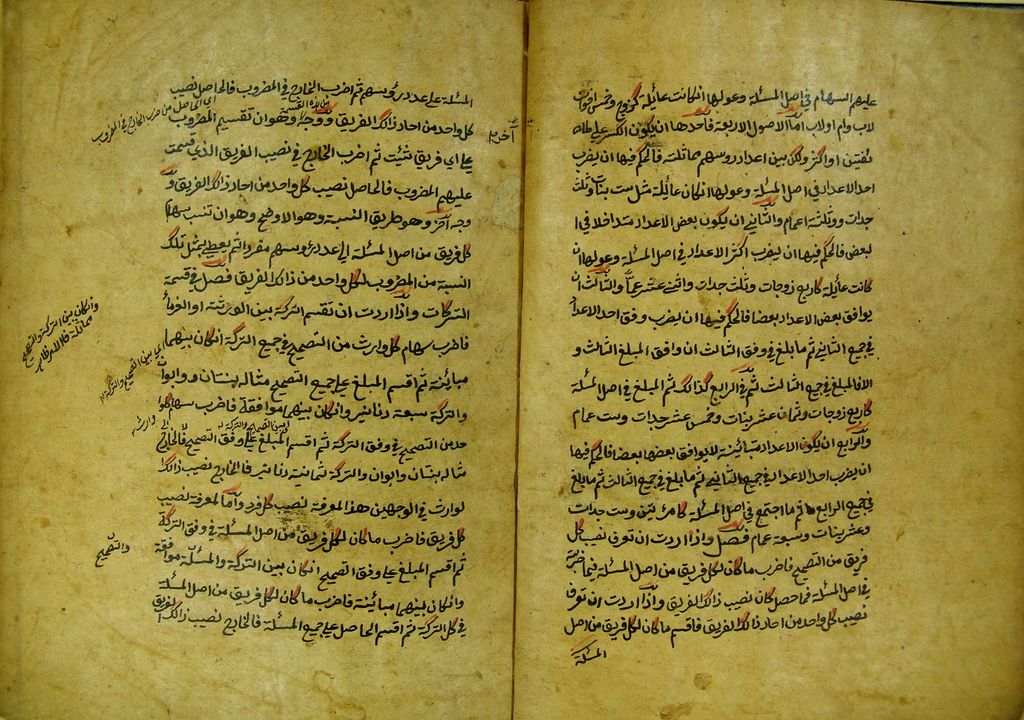 عليهم السهام في اصل المسئلة وعولها ان كانت عائلة كزوج وخمس اخوات
لاب وام او لاب اما الاصول الاربعة فاحدها ان يكون الكسر على طا
ئفتين او اكثر ولكن بين اعداد روسهم مماثلة فالحكم فيها ان يضرب
احد الاعداد في اصل المسئلة وعولها ان كان عائلة مثل ست بنات وثلث
جدات وثلثة اعمام والثاني ان يكون بعض الاعداد متداخلا في ا
لبعض فالحكم فيها ان يضرب اكثر الاعداد في اصل المسئلة وعولها ان
كانت عائلة كاربع زوجات وثلث جدات واثنى عشر عما والثالث ان
يوافق بعض الاعداد بعضا فالحكم فيها ان يضرب وفق احد الاعداد
في جميع الثاني ثم ما بلغ في وفق الثالث ان وافق المبلغ الثالث و
الا فالمبلغ في جميع الثالث ثم في الرابع كذالك ثم المبلغ في اصل المسئلة
كاربع زوجات وثمان عشر بنات وخمس عشر جدات وست عمام
والرابع ان يكون الاعداد متبائنة لا يوافق بعضها بعضا فالحكم فيها
ان يضرب احد الاعداد في جميع الثاني ثم ما بلغ في جميع الثالث ثم ما بلغ
في جميع الرابع ثم ما اجتمع في اصل المسئلة كامرئتين وست جدات
وعشر بنات وسبعة عمام فصل واذا اردت ان تعرف نصيب كل
فريق من التصحيح فاضرب ما كان لكل فريق من اصل المسئلة فيما ضربته
في اصل المسئلة فما حصل كان نصيب ذالك الفريق واذا اردت ان تعرف
نصيب كل واحد من احاد ذالك الفريق فاقسم ما كان لكل فريق من اصل
المسئلة
المسئلة على عدد رؤسهم ثم اضرب الخارج في المضروب فالحاصل نصيب
اي الحاصل من ضرب الخارج في المضروب
كل واحد من احاد ذالك الفريق ووجه وهوان تقسيم المضروب
آخر
على اي فريق شئت ثم اضرب الخارج في نصيب الفريق الذي قسمت
عليهم المضروب فالحاصل نصيب كل واحد من احاد ذالك الفريق و
وجه آخر وهو طريق النسبة وهو الاوضح وهو ان تنسب سهام
كل فريق من اصل المسئلة الى عدد رؤسهم مفردا ثم يعطى بمثل تلك
النسبة من المضروب لكل واحد من ذالك الفريق فصل في قسمة
التركات واذا اردت ان تقسم التركة بين الورثته او الغرماء
فاضرب سهام كل وارث من التصحيح في جميع التركة ان كان بينهما
اي بين التصحيح والتركة
مبائنة ثم اقسم المبلغ على جميع التصحيح مثاله بنتان وابوان
والتركة سبعة دنانير وان كان بينهما موافقة فاضرب سهام كل وا
وارث
حد من التصحيح في وفق التركة ثم اقسم المبلغ على وفق التصحيح فالخارج
مثاله بنتان وابوان والتركة ثمانية دنانير فالخارج نصيب ذالك
لوارث في الوجهين هذا المعرفة نصيب كل فرد واما لمعرفة نصيب
كل فريق فاضرب ما كان لكل فريق من اصل المسئلة في وفق التركة
ثم اقسم المبلغ على وفق التصحيح ان كان بين التركة والمسئلة موافقة
والتصحيح
وان كان بينهما مبائنة فاضرب ما كان لكل فريق من اصل المسئلة
في كل التركة ثم اقسم الحاصل على جميع المسئلة فالخارج نصيب ذالك الفريق
وان كان بين التركة والتصحيح
مماثلة فالامر ظاهر